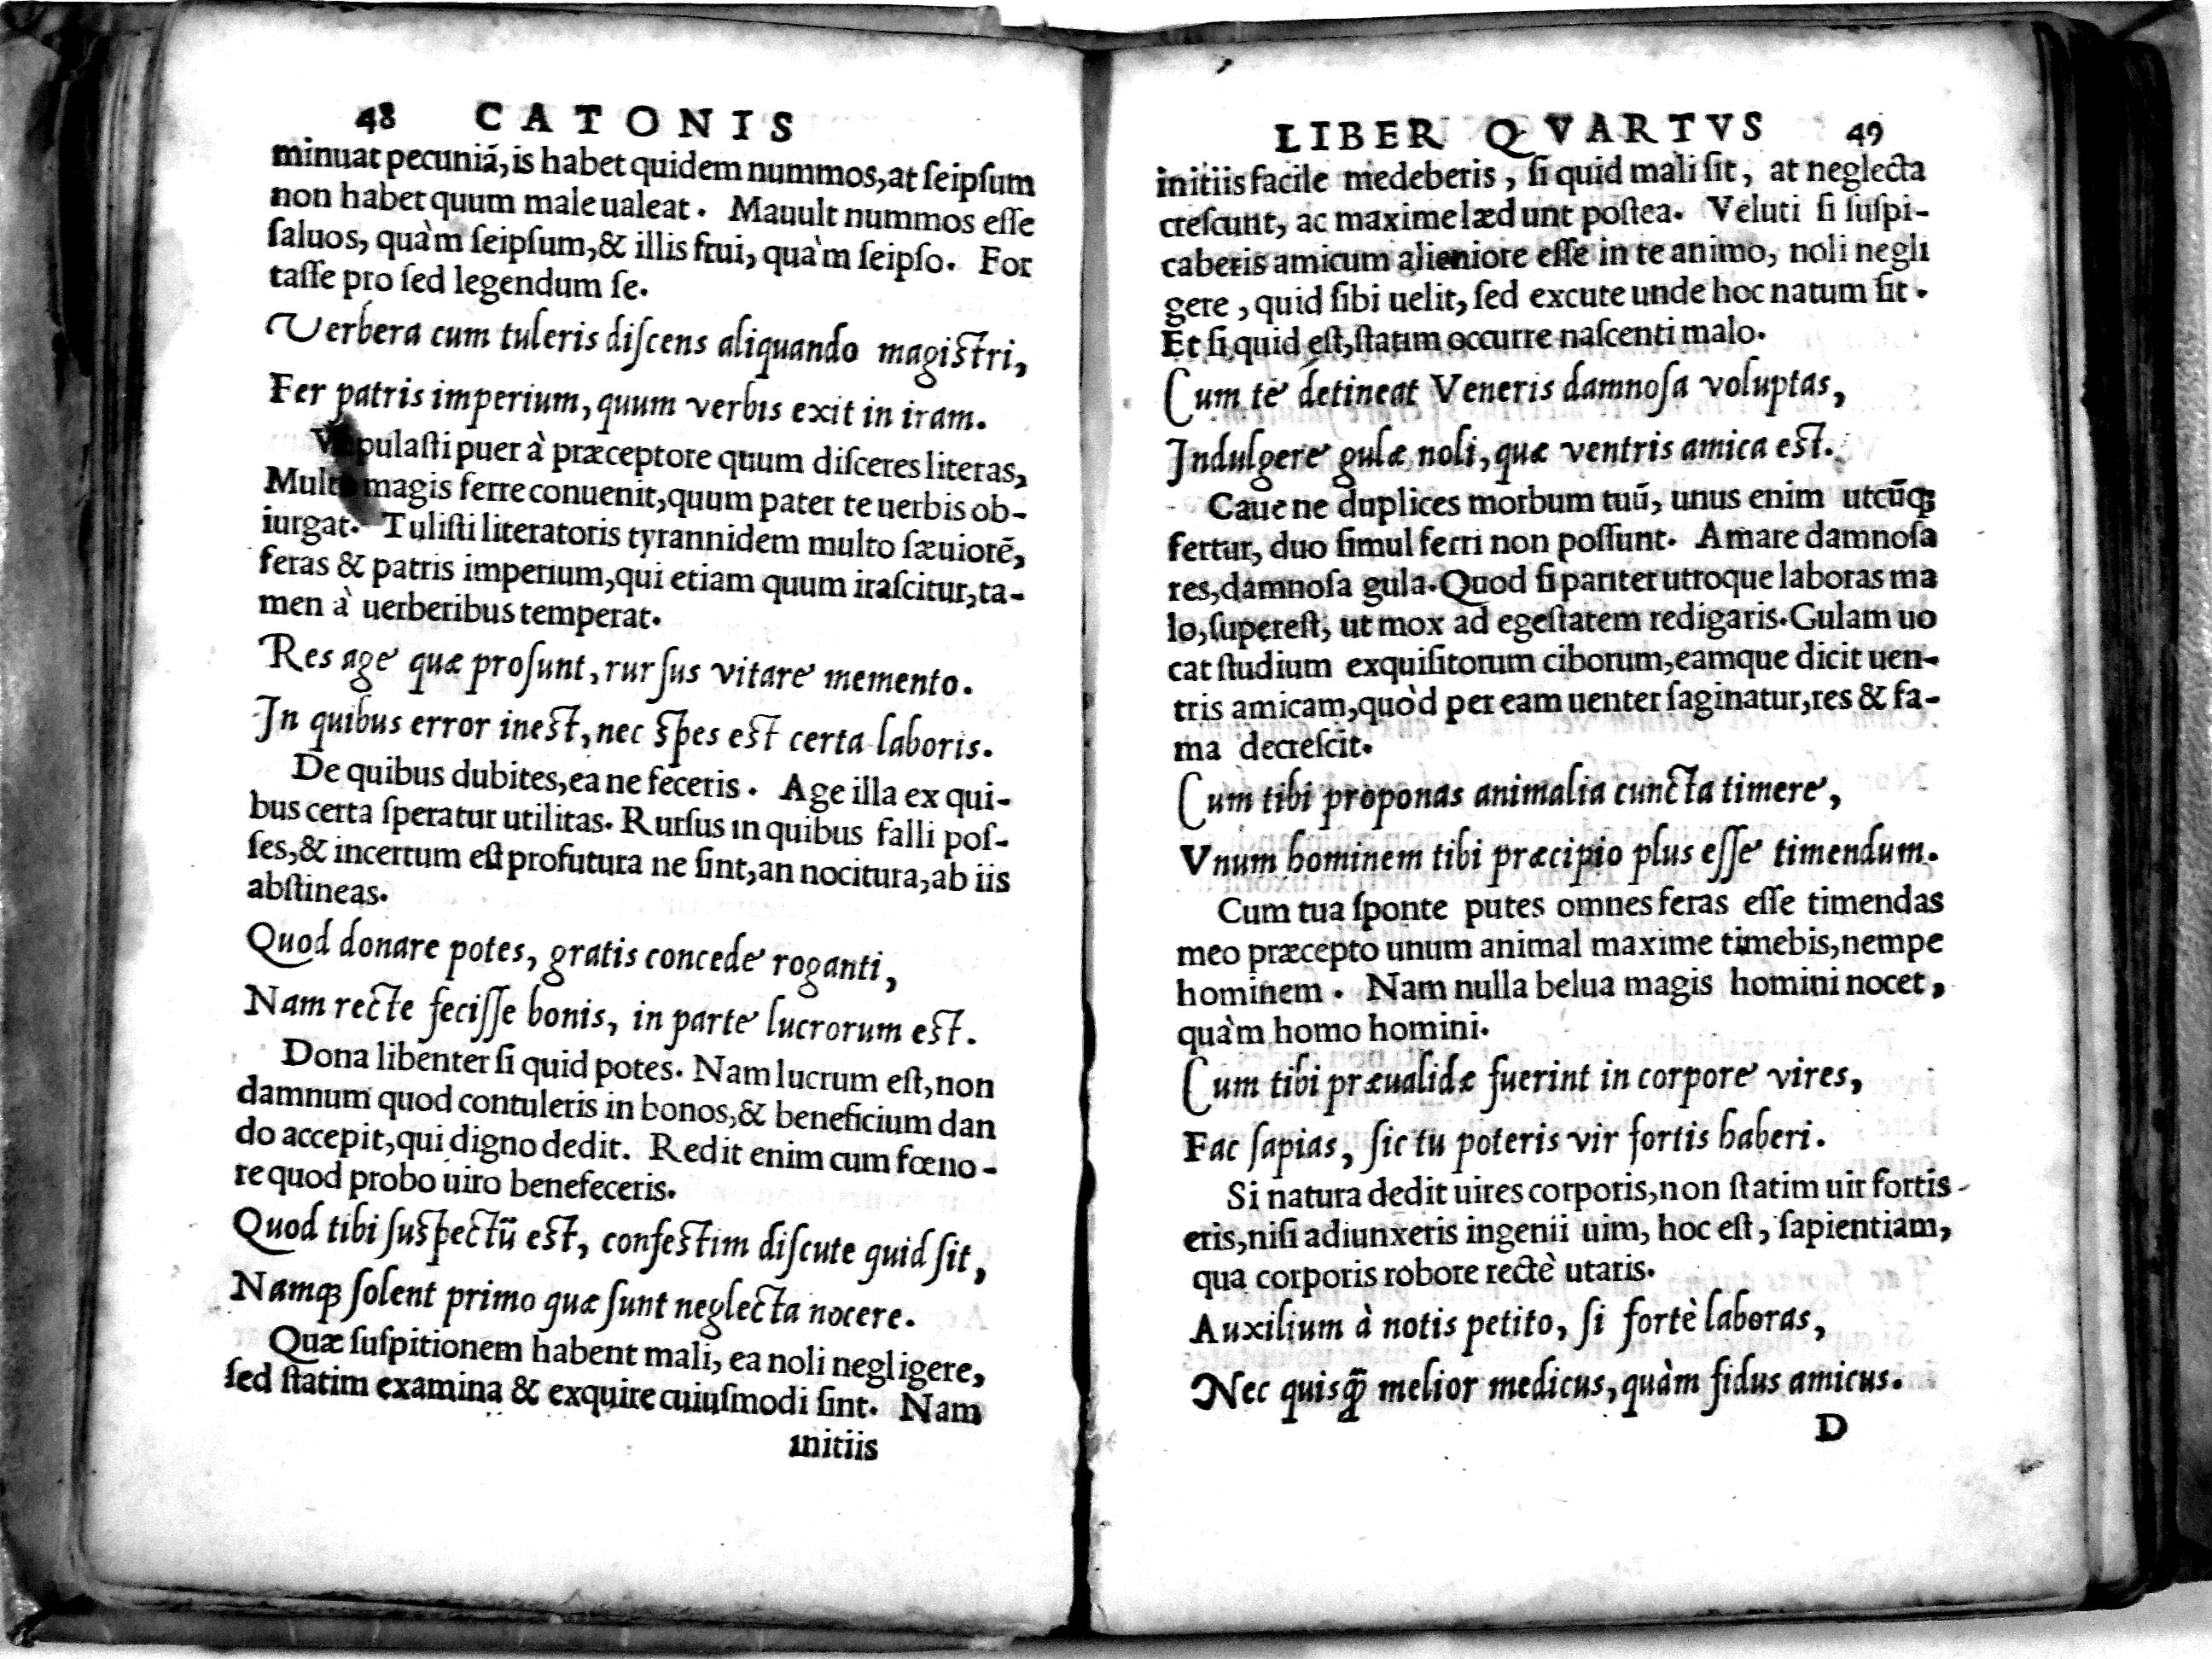 48 CATONIS
minuat pecuniā, is habet quidem nummos, at ſeipſum
non habet quum male ualeat. Mauult nummos eſſe
ſaluos, quàm ſeipſum, & illis frui, quàm ſeipſo. For
taſſe pro ſed legendum ſe.
Verbera cum tuleris diſcens aliquando magiſtri,
Fer patris imperium, quum verbis exit in iram.
Vapulaſti puer à præceptore quum diſceres literas,
Multo magis ferre conuenit, quum pater te uerbis ob-
iurgat. Tuliſti literatoris tyrannidem multo ſæuiorē,
feras & patris imperium, qui etiam quum iraſcitur, ta-
men à uerberibus temperat.
Res age quæ proſunt, rurſus vitare memento.
In quibus error ineſt, nec ſpes eſt certa laboris.
De quibus dubites, ea ne feceris. Age illa ex qui-
bus certa ſperatur utilitas. Rurſus in quibus falli poſ-
ſes, & incertum eſt profutura ne ſint, an nocitura, ab iis
abſtineas.
Quod donare potes, gratis concede roganti,
Nam recte feciſſe bonis, in parte lucrorum eſt.
Dona libenter ſi quid potes. Nam lucrum eſt, non
damnum quod contuleris in bonos, & beneficium dan
do accepit, qui digno dedit. Redit enim cum fœno-
re quod probo uiro benefeceris.
Quod tibi ſuſpectū eſt, confeſtim diſcute quid ſit,
Namq; ſolent primo quæ ſunt neglecta nocere.
Quæ ſuſpitionem habent mali, ea noli negligere,
ſed ſtatim examina & exquire cuiuſmodi ſint. Nam
initiis
LIBER QVARTVS 49
initiis facile medeberis, ſi quid mali ſit, at neglecta
creſcunt, ac maxime lædunt poſtea. Veluti ſi ſuſpi-
caberis amicum alieniore eſſe in te animo, noli negli
gere, quid ſibi uelit, ſed excute unde hoc natum ſit.
Et ſi quid eſt, ſtatim occurre naſcenti malo.
Cum te detineat Veneris damnoſa voluptas,
Indulgere gulæ noli, quæ ventris amica eſt.
Caue ne duplices morbum tuū, unus enim utcūq;
fertur, duo ſimul ferri non poſſunt. Amare damnoſa
res, damnoſa gula. Quod ſi pariter utroque laboras ma
lo, ſupereſt, ut mox ad egeſtatem redigaris. Gulam uo
cat ſtudium exquiſitorum ciborum, eamque dicit uen-
tris amicam, quòd per eam uenter ſaginatur, res & fa-
ma decreſcit.
Cum tibi proponas animalia cuncta timere,
Vnum hominem tibi præcipio plus eſſe timendum.
Cum tua ſponte putes omnes feras eſſe timendas
meo præcepto unum animal maxime timebis, nempe
hominem. Nam nulla belua magis homini nocet,
quàm homo homini.
Cum tibi præualidæ fuerint in corpore vires,
Fac ſapias, ſic tu poteris vir fortis haberi.
Si natura dedit uires corporis, non ſtatim uir fortis
eris, niſi adiunxeris ingenii uim, hoc eſt, ſapientiam,
qua corporis robore rectè utaris.
Auxilium à notis petito, ſi fortè laboras,
Nec quisq̃ melior medicus, quàm fidus amicus.
D